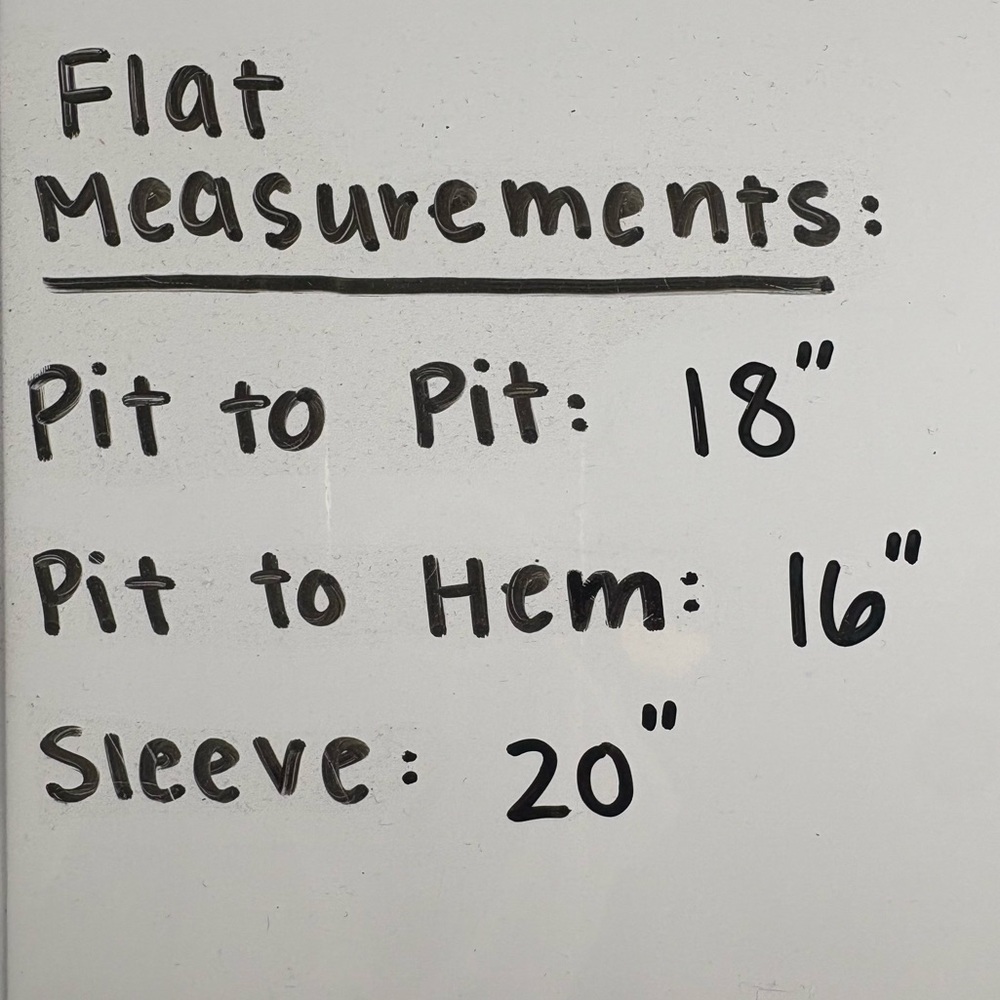 Flat
Measurements:
Pit to Pit: 18"
Pit to Hem: 16"
Sleeve: 20"